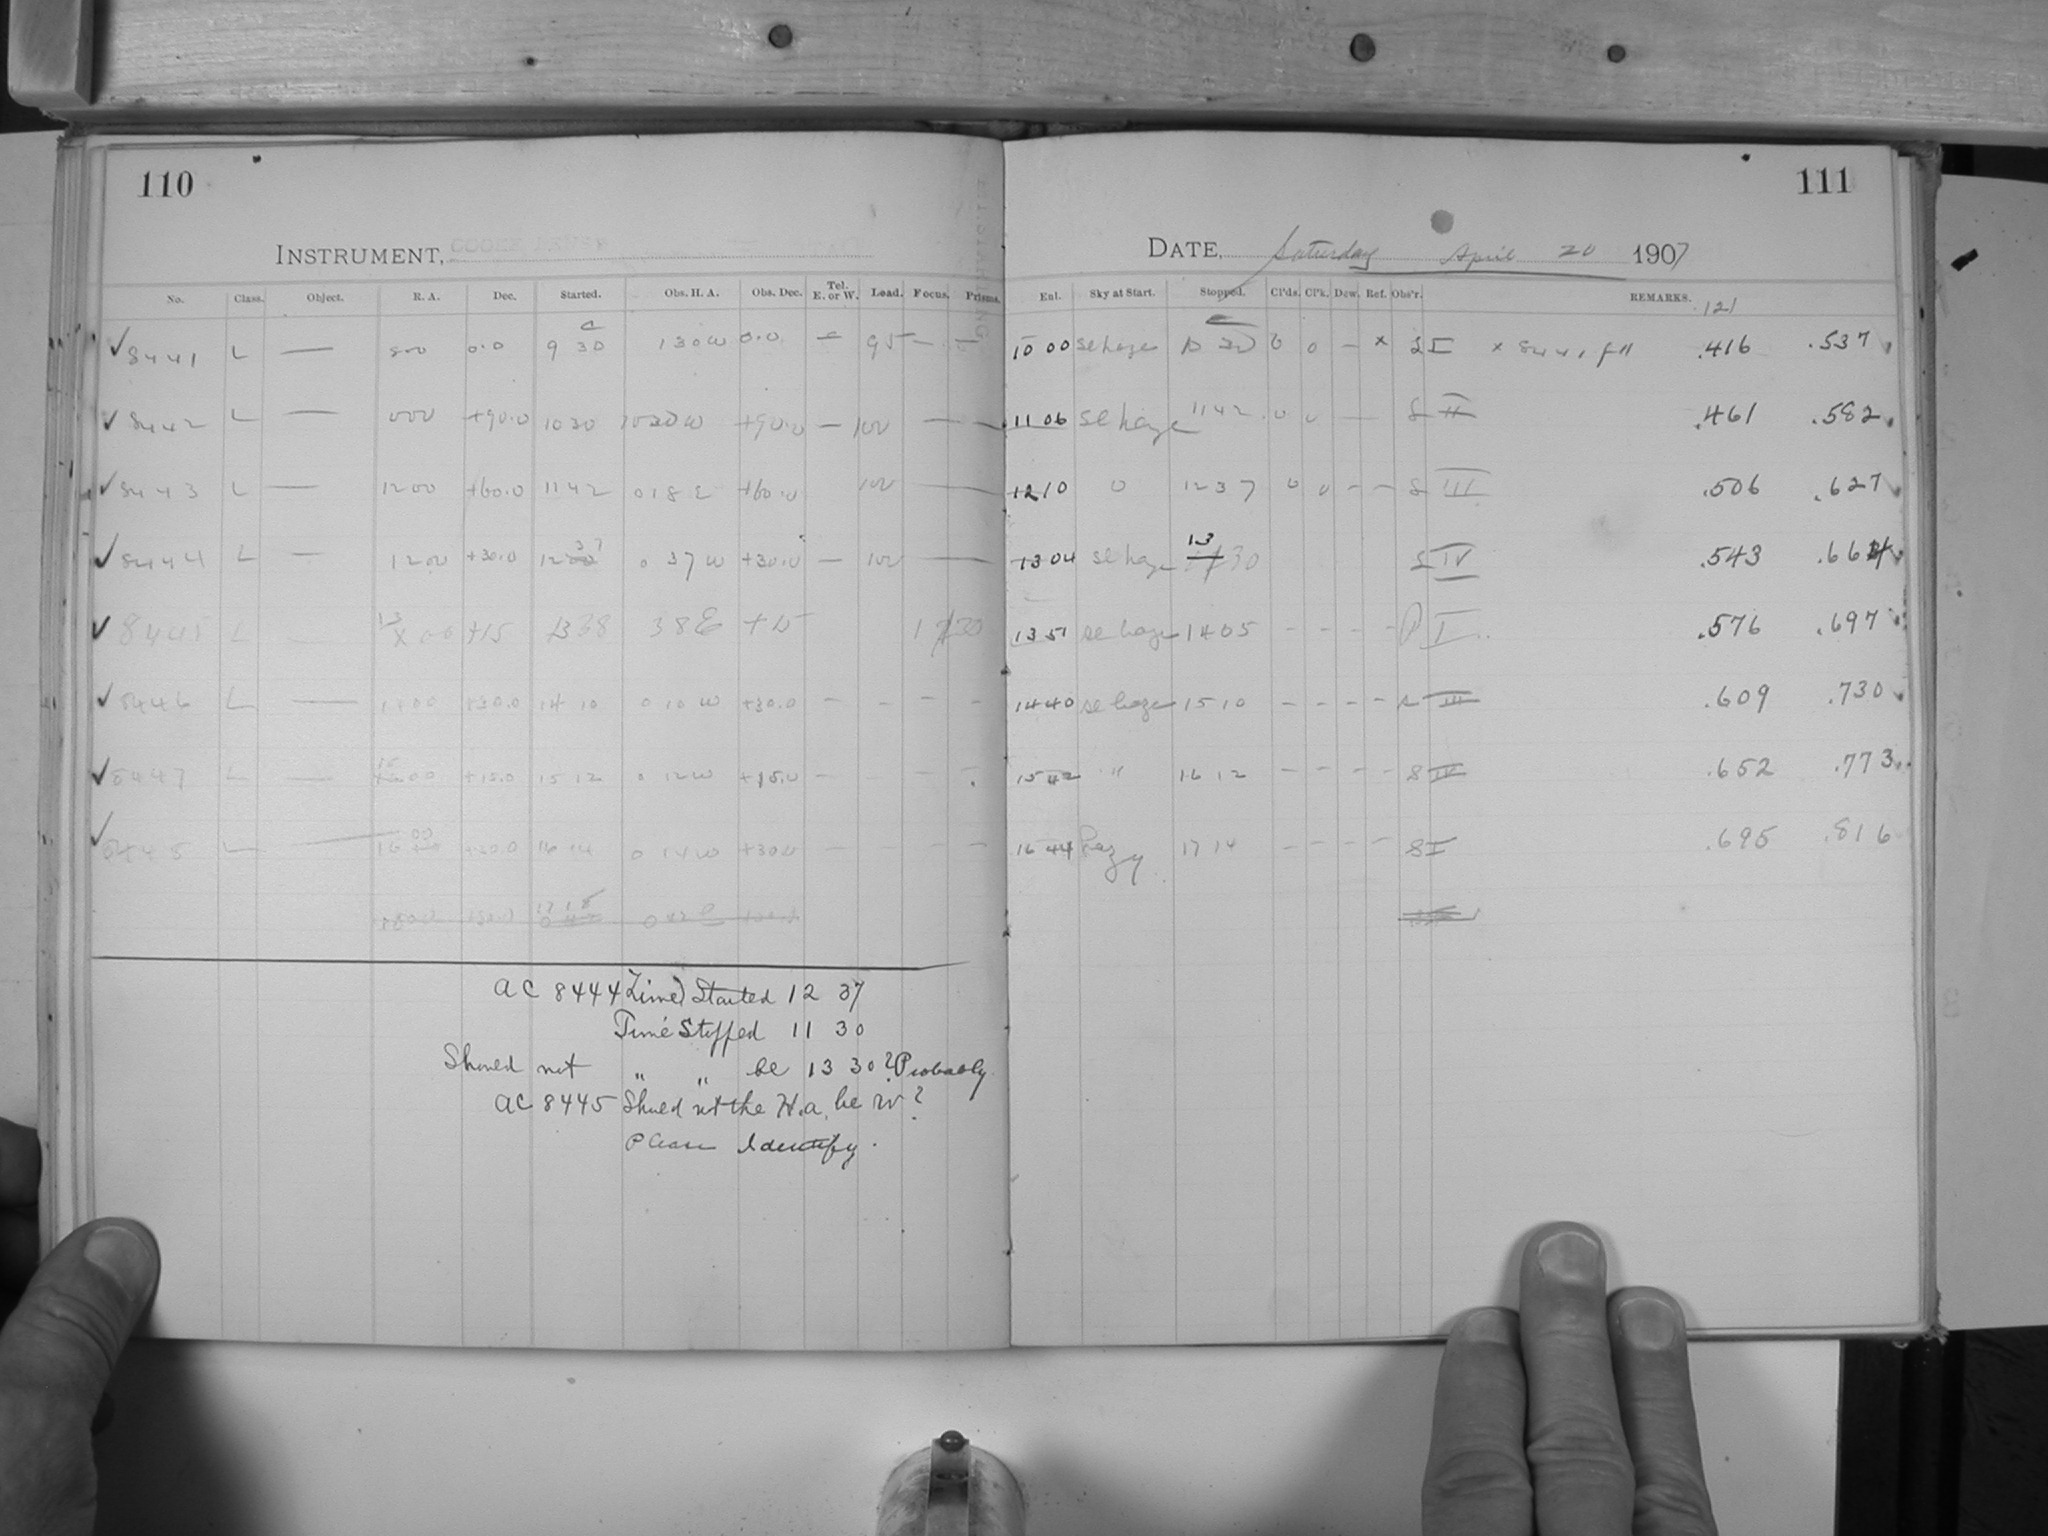 110
INSTRUMENT,
No. Class. Object. R. A. Dec. Started. Obs. H. A. Obs. Dec. Tel. E. or W. Lead. Focus. Prisms.
8441 L — 800 0.0 9 30 130 W 0.0 — 95 — —
8442 L — 000 +90.0 10 30 10 30 W +90.0 — 100 — —
8443 L — 1200 +60.0 11 42 0 18 E +60.0 100 —
8444 L — 1200 +30.0 12 37 0 37 W +30.0 — 100 —
8445 L — 13 00 +15 13 38 38 E +15
8446 L — 1400 +30.0 14 10 0 10 W +30.0 — — — —
8447 L — 15 00 +15.0 15 12 0 12 W +15.0 — — — —
8448 L — 16 00 +30.0 16 14 0 14 W +30.0 — — — —
17 18
AC 8444 Time Started 12 37
Time Stopped 11 30
Should not " " be 13 30? Probably
AC 8445 Should not the H.a. be W?
Please Identify.
111
DATE, Saturday April 20 1907
Enl. Sky at Start. Stopped. Cl'ds. Cl'k. Dew. Ref. Obs'r. REMARKS. 121
10 00 sl haze 10 30 0 0 — x S I x 8441 f 11 .416 .537
11 06 sl haze 11 42 0 0 — S II .461 .582
12 10 0 12 37 0 0 — — S III .506 .627
13 04 sl haze 13 30 S IV .543 .664
13 51 sl haze 14 05 — — — — P I .576 .697
14 40 sl haze 15 10 — — — — S III .609 .730
15 42 " 16 12 — — — — S IV .652 .773
16 44 Hazy 17 14 — — — — S I .695 .816